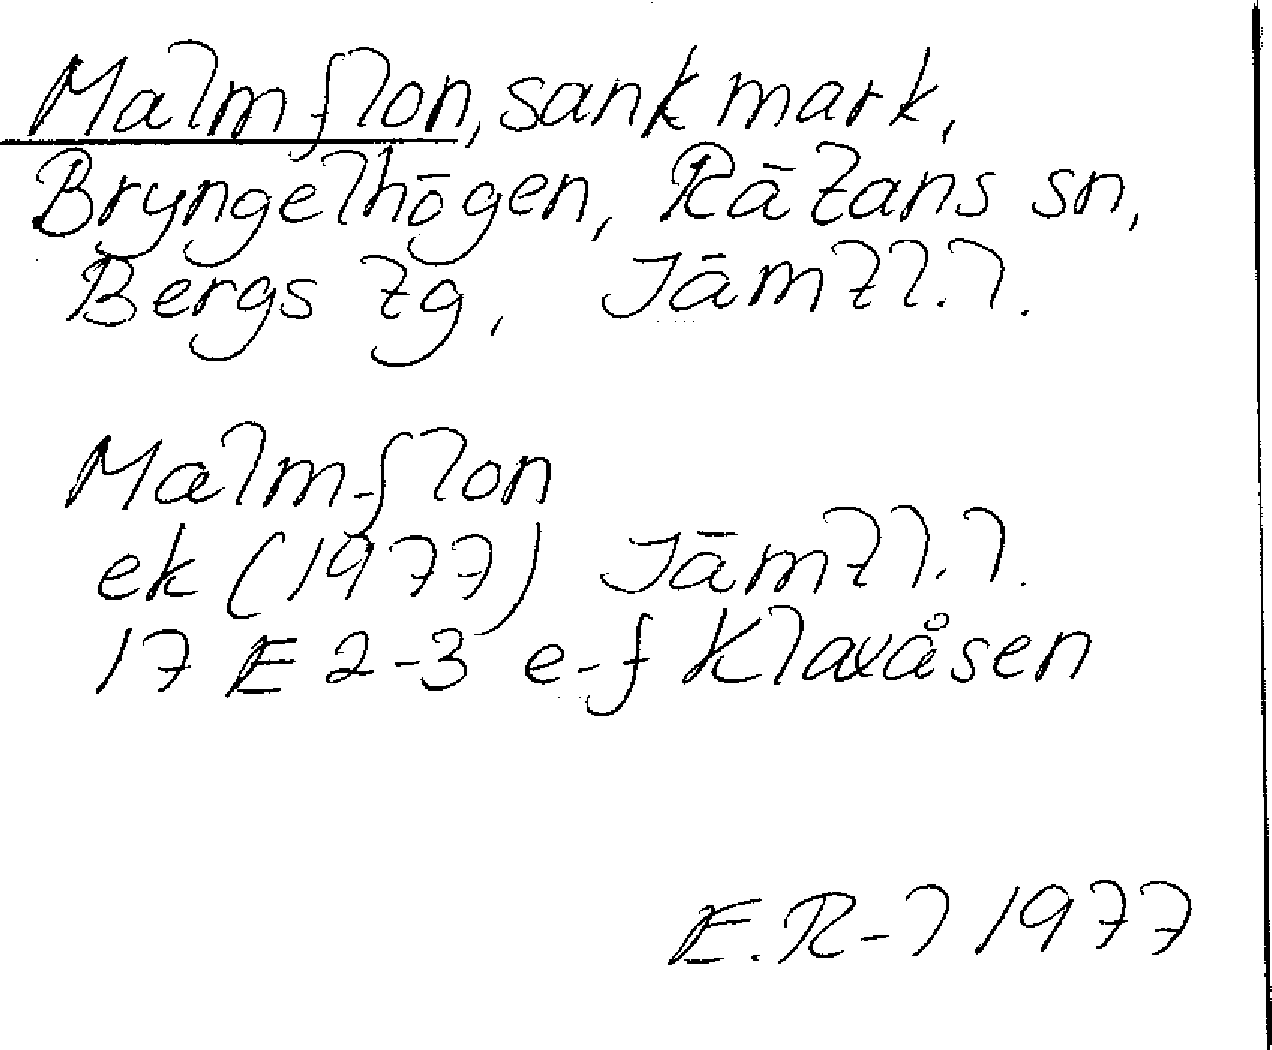 Malmflon, sankmark,
Bryngelhögen, Rätans sn,
Bergs tg, Jämtl. l.
Malm-flon
ek (1977) Jämtl. l.
17 E 2-3 e-f Klaxåsen
E. R-l 1977